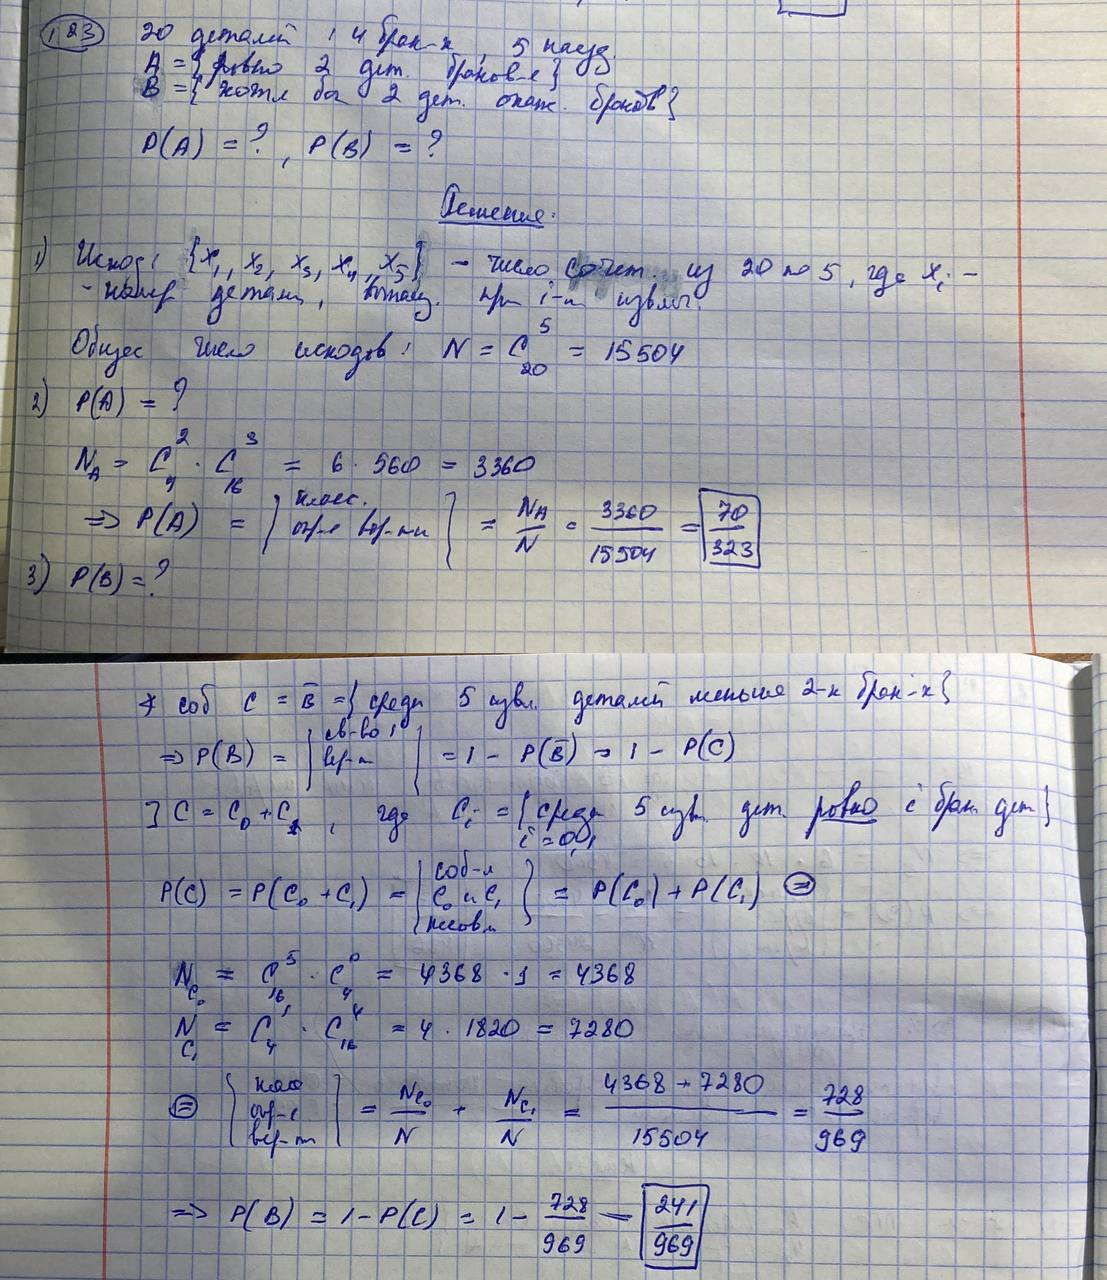 1.23 20 деталей, 4 брак-х, 5 науд.
A = {ровно 2 дет. браков-е}
B = {хотя бы 2 дет. окаж. браков}
P(A) = ?, P(B) = ?
Решение.
1) Исход: {x₁, x₂, x₃, x₄, x₅} - число сочет. из 20 по 5, где xᵢ -
- номер детали, при i-м извлеч.
Общее число исходов: N = C₂₀⁵ = 15504
2) P(A) = ?
N_A = C₄² · C₁₆³ = 6 · 560 = 3360
=> P(A) = | класс. опр-е вер-ти | = N_A/N = 3360/15504 = 70/323
3) P(B) = ?
соб C = B̄ = {среди 5 извл. деталей меньше 2-х брак-х}
=> P(B) = | св-во вер-ти | = 1 - P(B̄) = 1 - P(C)
] C = C₀ + C₁, где Cᵢ = {среди 5 извл. дет. ровно i брак. дет}
i = 0,1
P(C) = P(C₀ + C₁) = | соб-я C₀ и C₁ несовм | = P(C₀) + P(C₁) =
N_C₀ = C₁₆⁵ · C₄⁰ = 4368 · 1 = 4368
N_C₁ = C₄¹ · C₁₆⁴ = 4 · 1820 = 7280
= | опр-е вер-ти | = N_C₀/N + N_C₁/N = (4368 + 7280)/15504 = 728/969
=> P(B) = 1 - P(C) = 1 - 728/969 = 241/969